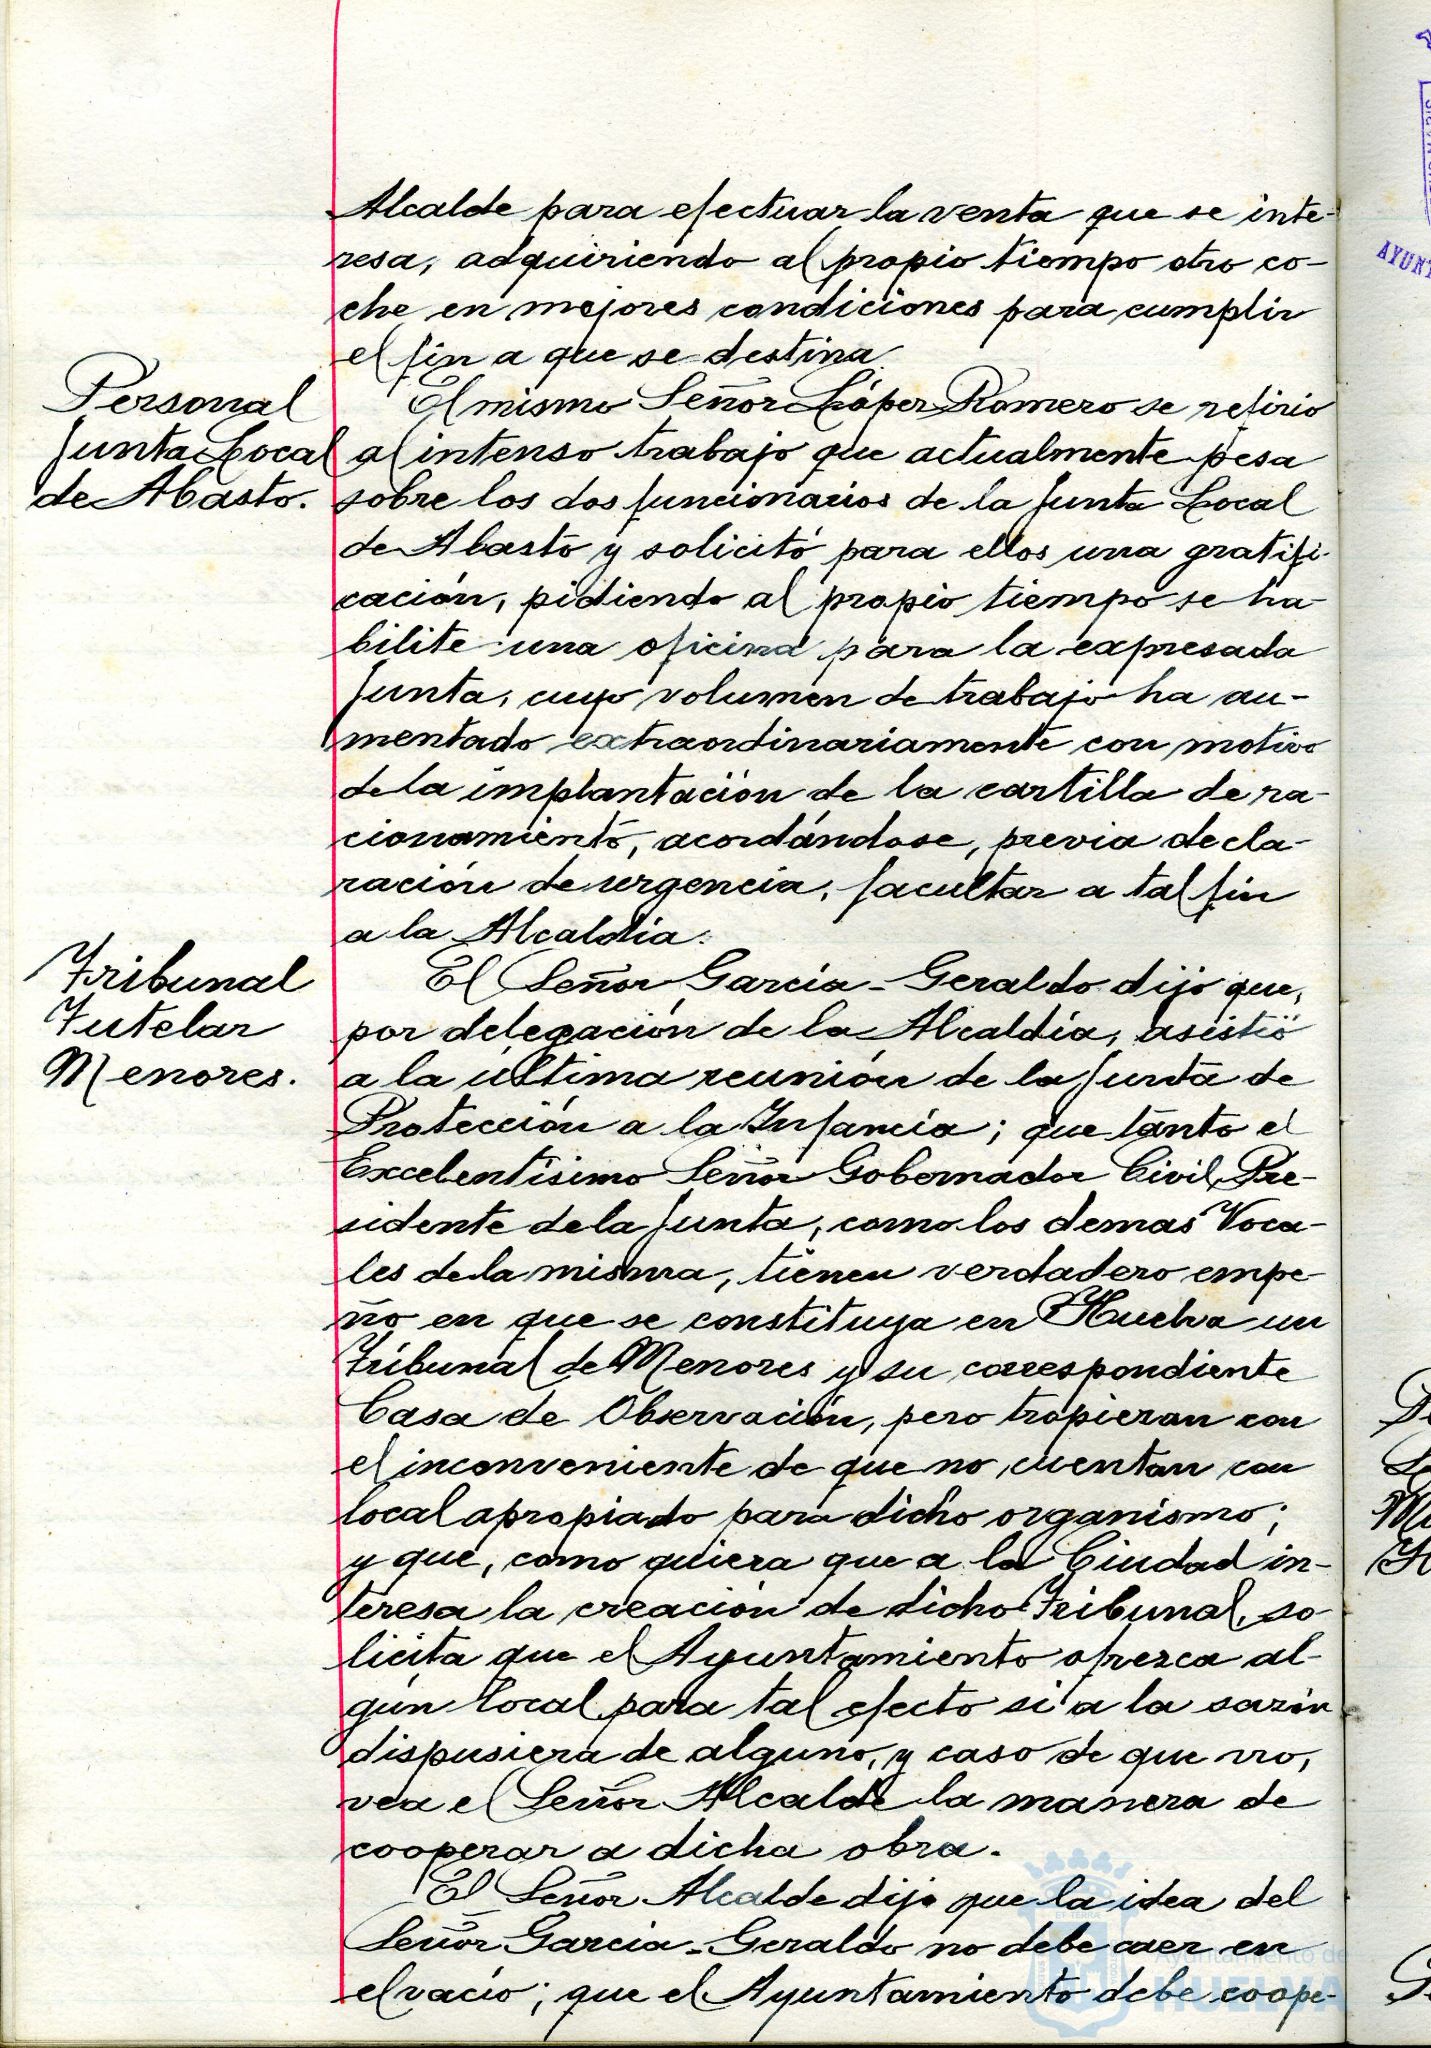 Alcalde para efectuar la venta que se inte-
resa, adquiriendo al propio tiempo otro co-
che en mejores condiciones para cumplir
el fin a que se destina.
Personal
Junta Local
de Abasto.
El mismo Señor López Romero se refirio
al intenso trabajo que actualmente pesa
sobre los dos funcionarios de la Junta Local
de Abasto y solicitó para ellos una gratifi-
cación, pidiendo al propio tiempo se ha-
bilite una oficina para la expresada
Junta, cuyo volumen de trabajo ha au-
mentado extraordinariamente con motivo
de la implantación de la cartilla de ra-
cionamiento, acordándose, previa decla-
ración de urgencia, facultar a tal fin
a la Alcaldia.
Tribunal
Tutelar
Menores.
El Señor García-Geraldo dijo que,
por delegación de la Alcaldía, asistió
a la última reunión de la Junta de
Protección a la Infancia; que tanto el
Excelentísimo Señor Gobernador Civil, Pre-
sidente de la Junta, como los demas Voca-
les de la misma, tienen verdadero empe-
ño en que se constituya en Huelva un
Tribunal de Menores y su correspondiente
Casa de Observación, pero tropiezan con
el inconveniente de que no cuentan con
local apropiado para dicho organismo;
y que, como quiera que a la Ciudad in-
teresa la creación de dicho Tribunal, so-
licita que el Ayuntamiento ofrezca al-
gún local para tal efecto si a la sazón
dispusiera de alguno, y caso de que no,
vea el Señor Alcalde la manera de
cooperar a dicha obra.
El Señor Alcalde dijo que la idea del
Señor Garcia-Geraldo no debe caer en
el vacío; que el Ayuntamiento debe coope-
Ayuntamiento de
HUELVA